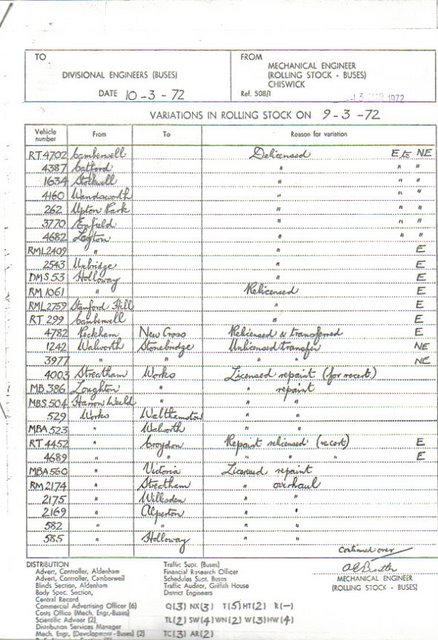 TO
DIVISIONAL ENGINEERS (BUSES)
DATE 10-3-72
FROM
MECHANICAL ENGINEER
(ROLLING STOCK - BUSES)
CHISWICK
Ref. 508/1
1972
VARIATIONS IN ROLLING STOCK ON 9-3-72
Vehicle number From To Reason for variation
RT 4702 Camberwell Delicensed E to NE
4387 Catford " " "
1634 Stockwell " " "
4160 Wandsworth " " "
262 Upton Park " " "
3770 Enfield " " "
4682 Leyton " " "
RML 2409 " " E
2543 Uxbridge " E
DMS 53 Holloway " E
RM 1061 " Relicensed E
RML 2759 Stamford Hill " E
RT 299 Camberwell " E
4782 Peckham New Cross Relicensed & transferred E
1242 Walworth Stonebridge Unlicensed transfer NE
3977 " " " " NE
4003 Streatham Works Licensed repaint (for recert)
MB 386 Loughton " " repaint
MBS 504 Harrow Weald " " "
529 Works Walthamstow " "
MBA 523 " Walworth " "
RT 4452 " Croydon Repaint relicensed (recert) E
4689 " " " " " E
MBA 560 " Victoria Licensed repaint
RM 2174 " Streatham " overhaul
2175 " Willesden " "
2169 " Alperton " "
582 " " " "
585 " Holloway " "
continued over
MECHANICAL ENGINEER
(ROLLING STOCK - BUSES)
DISTRIBUTION
Advert. Controller, Aldenham
Advert. Controller, Camberwell
Blinds Section, Aldenham
Body Spec. Section,
Central Record
Commercial Advertising Officer (6)
Costs Office (Mech. Engr.-Buses)
Scientific Adviser (2)
Distribution Services Manager
Mech. Engr. (Development-Buses) (2)
Traffic Supt. (Buses)
Financial Research Officer
Schedules Supt. Buses
Traffic Auditor, Griffith House
District Engineers
Q(3) NX(3) T(5) HT(2) R(-)
TL(2) SW(4) WN(2) W(3) HW(4)
TC(3) AR(2)